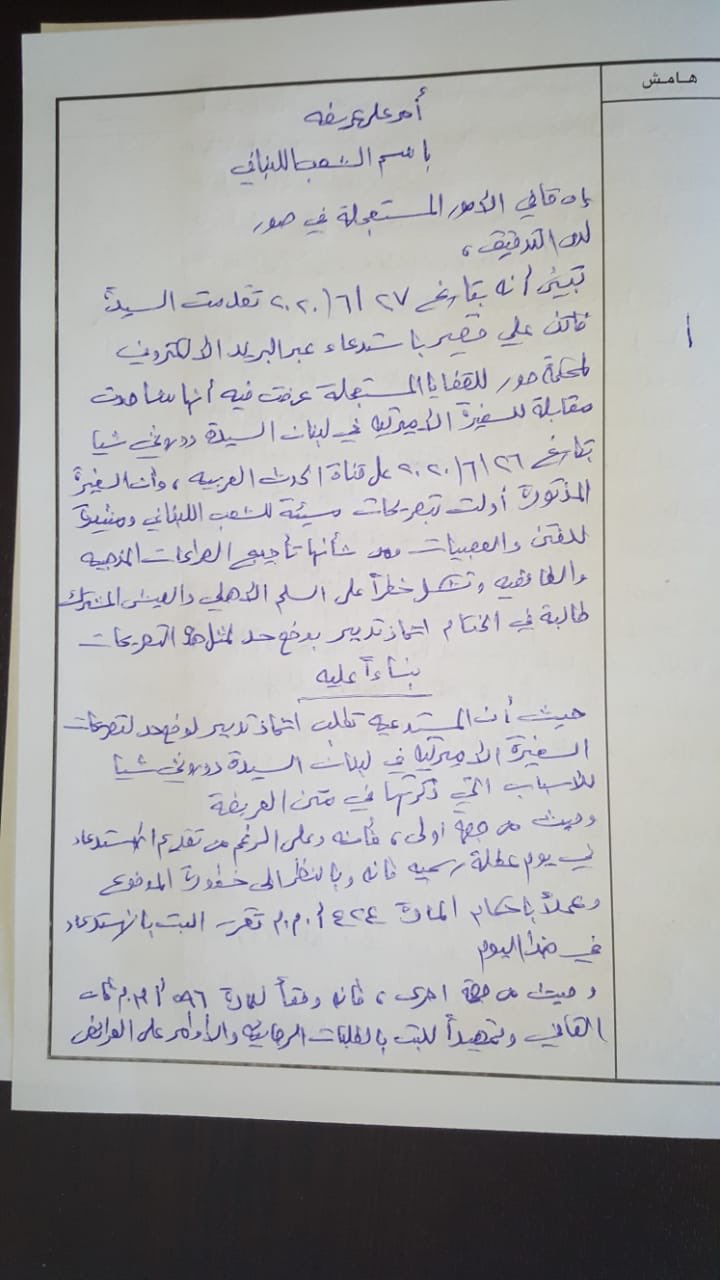 هامش
أمر على عريضه
باسم الشعب اللبناني
إن قاضي الأمور المستعجلة في صور
لدى التدقيق،
تبين أنه بتاريخ ٢٧/٦/٢٠٢٠ تقدمت السيدة
فاتن علي قصير باستدعاء عبر البريد الالكتروني
لمحكمة صور للقضايا المستعجلة عرضت فيه أنها شاهدت
مقابلة للسفيرة الأميركية في لبنان السيدة دوروثي شيا
بتاريخ ٢٦/٦/٢٠٢٠ على قناة الحدث العربية، وأن السفيرة
المذكورة أدلت بتصريحات مسيئة للشعب اللبناني ومثيرة
للفتن والعصبيات ومن شأنها تأجيج الصراعات المذهبية
والطائفيه وتشكل خطراً على السلم الأهلي والعيش المشترك
طالبة في الختام اتخاذ تدبير بوضع حد لمثل هذه التصريحات
بناءاً عليه
حيث أن المستدعيه تطلب اتخاذ تدبير لوضع حد لتصريحات
السفيرة الأميركية في لبنان السيدة دوروثي شيا
للأسباب التي ذكرتها في متن العريضة
وحيث من جهة أولى، فأنه وعلى الرغم من تقديم الاستدعاء
في يوم عطلة رسميه فانه وبالنظر الى خطورة الموضوع
وعملاً باحكام المادة ٤٢٤ أ.م.م تقرر البت بالاستدعاء
في هذا اليوم
وحيث من جهة اخرى، فانه وفقاً للمادة ٥٩٦ أ.م.م فان
القاضي وتمهيداً للبت بالطلبات الرجائيه والأوامر على العرائض
أ